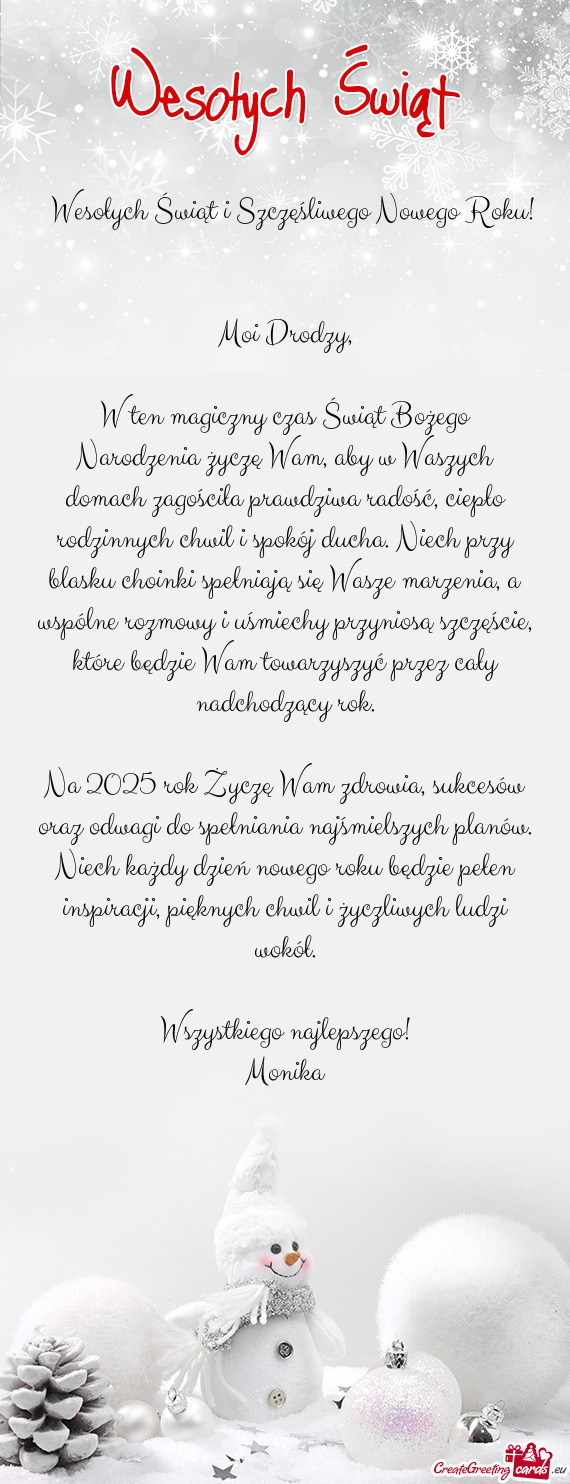 Wesołych Świąt
Wesołych Świąt i Szczęśliwego Nowego Roku!
Moi Drodzy,
W ten magiczny czas Świąt Bożego
Narodzenia życzę Wam, aby w Waszych
domach zagościła prawdziwa radość, ciepło
rodzinnych chwil i spokój ducha. Niech przy
blasku choinki spełniają się Wasze marzenia, a
wspólne rozmowy i uśmiechy przyniosą szczęście,
które będzie Wam towarzyszyć przez cały
nadchodzący rok.
Na 2025 rok Życzę Wam zdrowia, sukcesów
oraz odwagi do spełniania najśmielszych planów.
Niech każdy dzień nowego roku będzie pełen
inspiracji, pięknych chwil i życzliwych ludzi
wokół.
Wszystkiego najlepszego!
Monika
CreateGreetingcards.eu